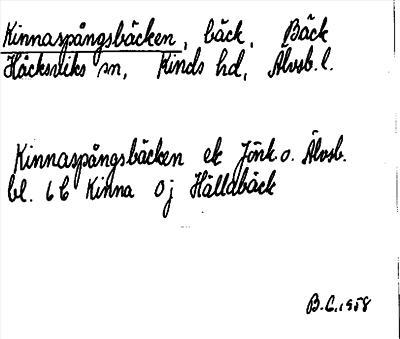 Kinnaspångsbäcken, bäck, Bäck
Håcksviks sn, Kinds hd, Älvsb. l.
Kinnaspångsbäcken ek Jönk. o. Älvsb.
bl. 6 C Kinna 0 j Hälldbäck
B.C. 1958